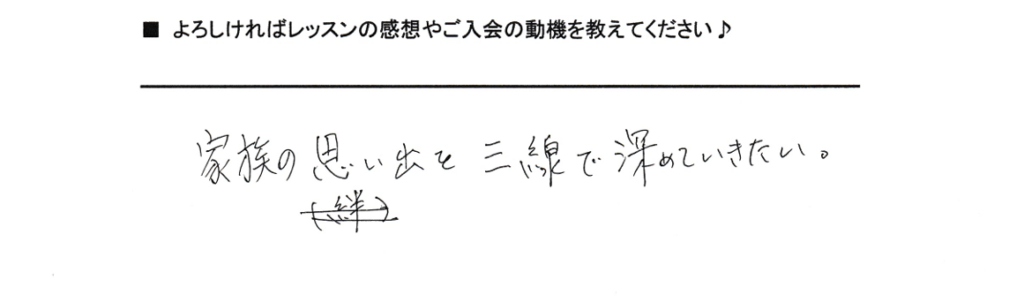 ■ よろしければレッスンの感想やご入会の動機を教えてください♪
家族の思い出を三線で深めていきたい。
(絆)